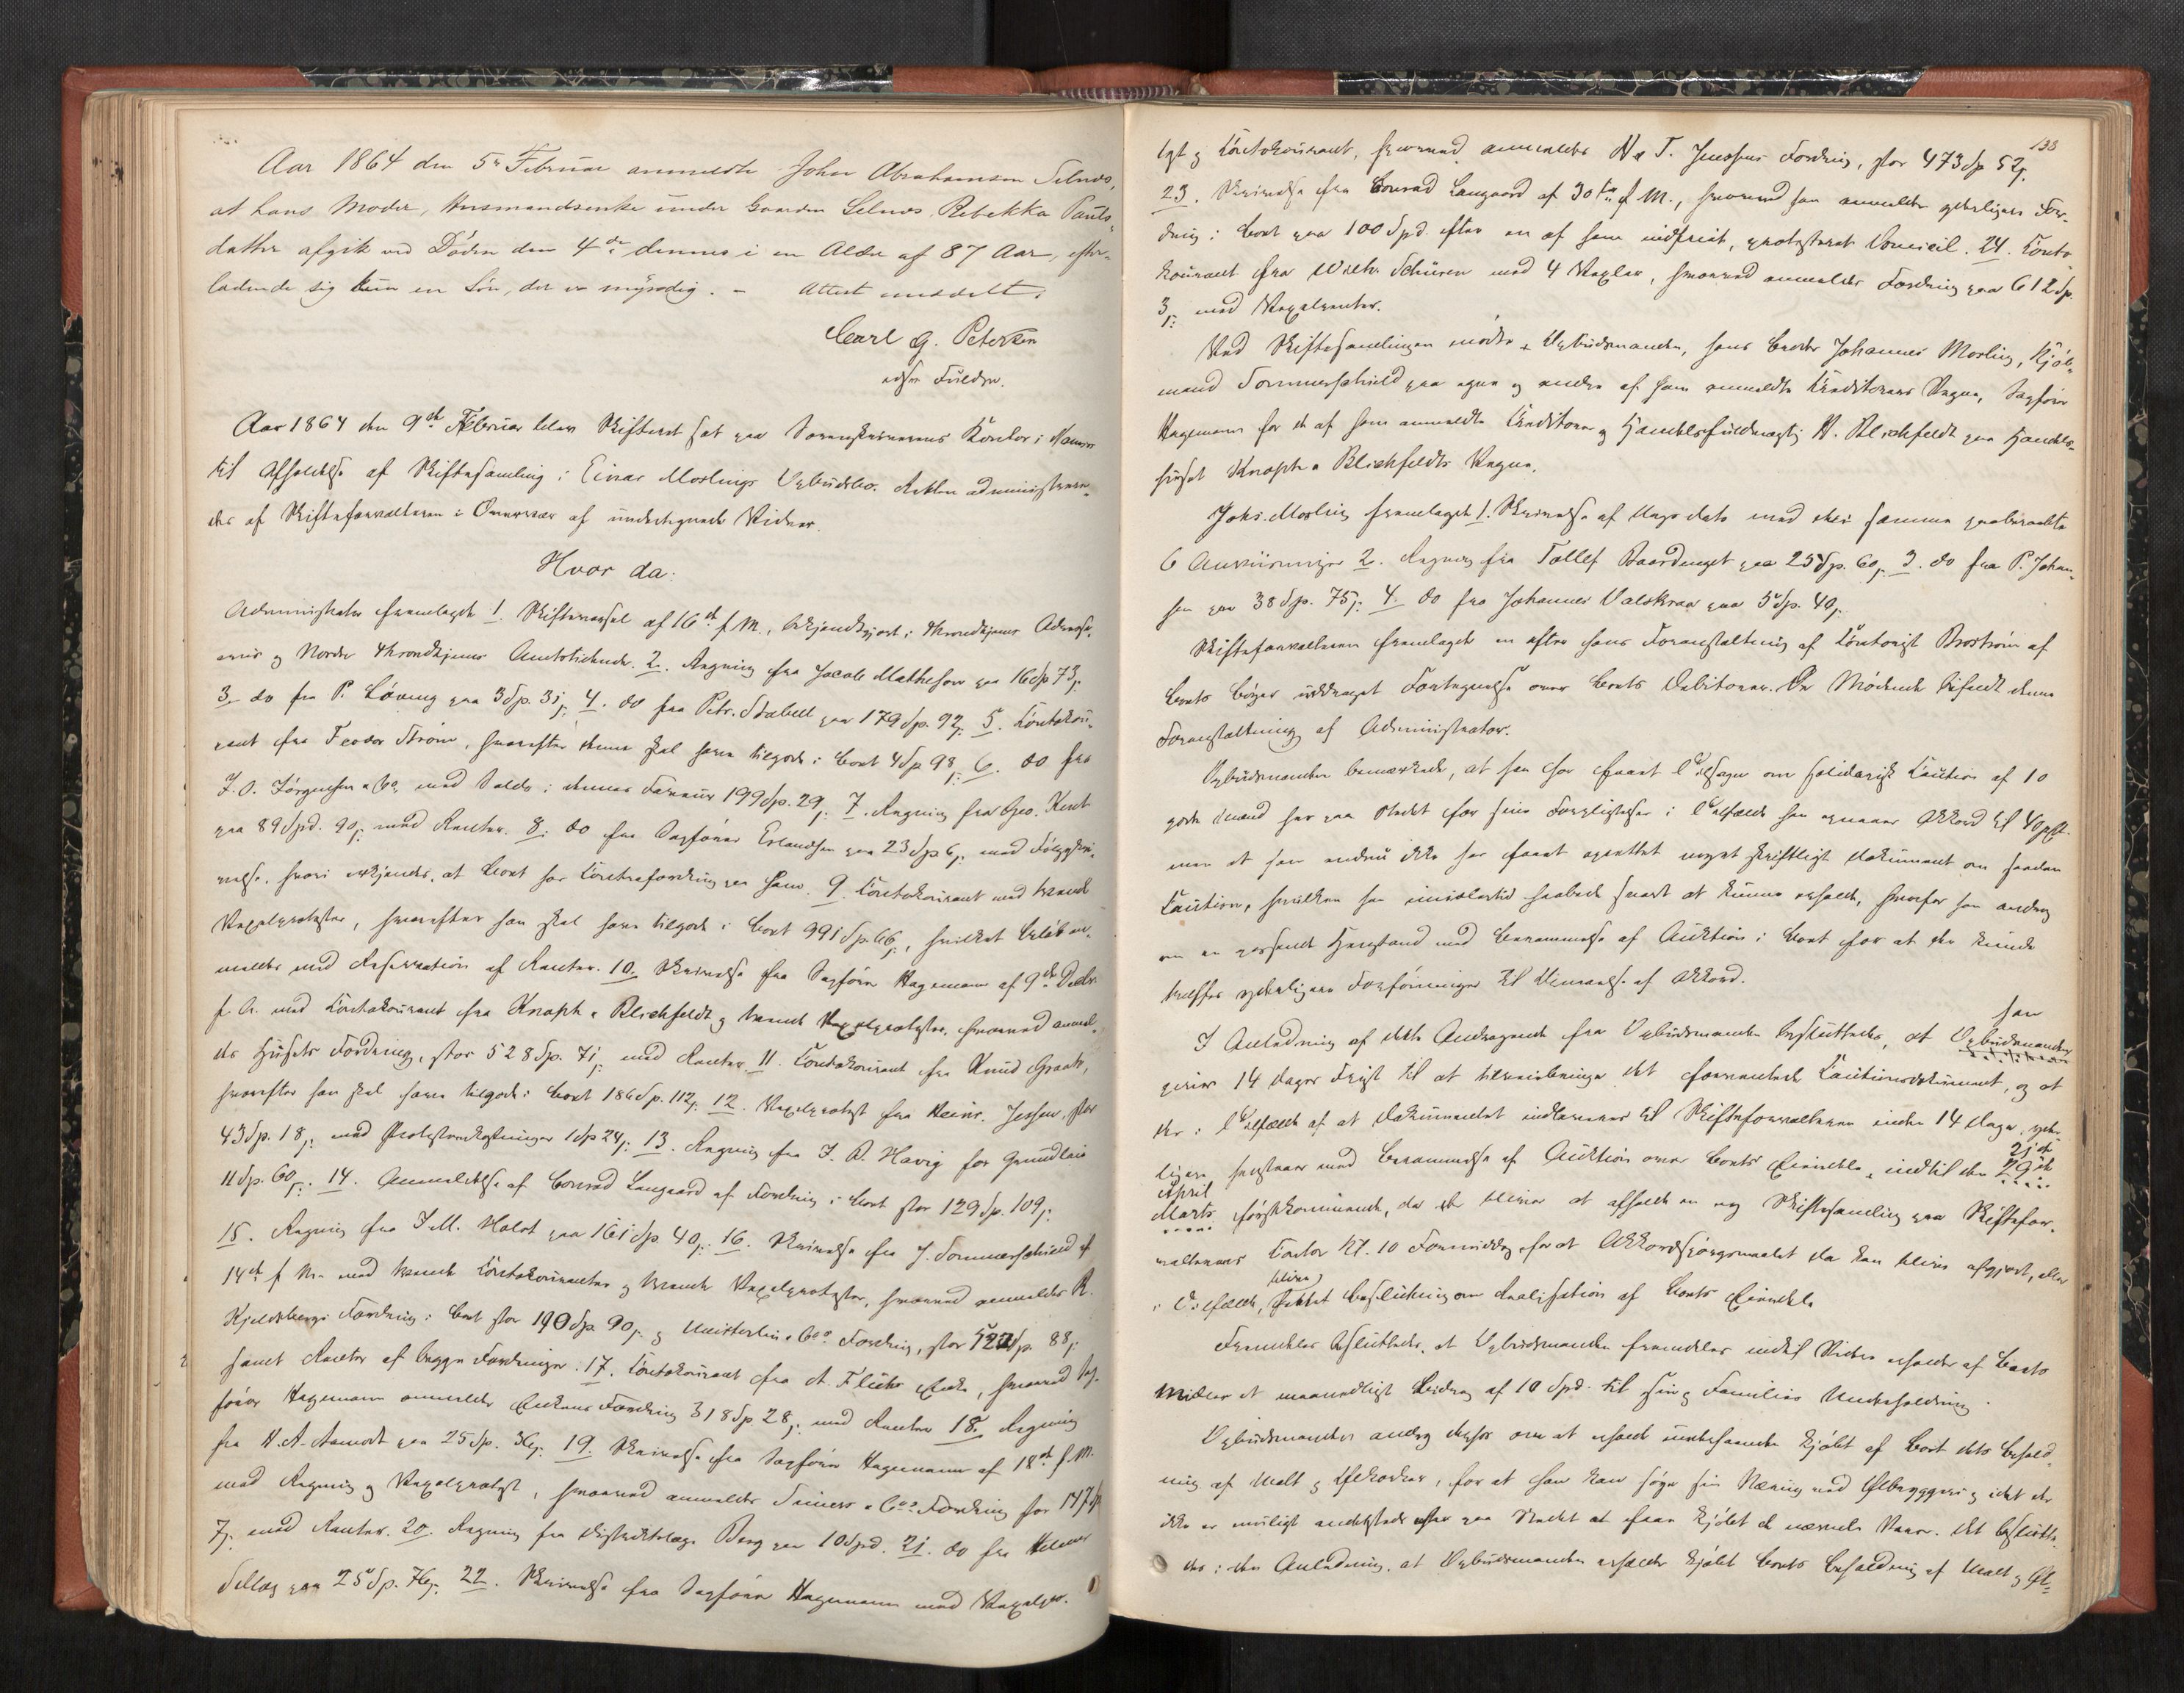 Aar 1864 den 5te Februar anmeldte John Abrahamsen Selnes,
at hans Moder, Huusmandsenke under Gaarden Selnes, Rebekka Pauls-
datter afgik ved Døden den 4de dennes i en Alder af 87 Aar, efter-
ladende sig kun en Søn, der er myndig. – Attest meddelt.
Carl G. Petersen
edsv Fuldm.
Aar 1864 den 9de Februar blev Skifteret sat paa Sorenskriverens Kontor i Namsos
til Afholdelse af Skiftesamling i Einar Moslings Opbudsbo. Retten administrere-
des af Skifteforvalteren i Overvær af undertegnede Vidner.
Hvor da:
Administrator fremlagde 1. Skiftevarsel af 16de f. M., bekjendtgjort i Throndhjems Adresse-
avis og Nordre Throndhjems Amtstidende. 2. Regning fra Jacob Mathesen paa 16 Sp 73 ß.
3. do fra P. Løveng paa 3 Sp. 31 ß. 4. do fra Petr. Stabell paa 179 Sp. 92 ß. 5. Contokou-
rant fra Feodor Strøm, hvorefter denne skal have tilgode i Boet 4 Sp 98 ß. 6. do fra
J. O. Jørgensen & Co. med Saldo i dennes Faveur 199 Sp. 29 ß. 7. Regning fra Geo. Kent
paa 89 Spd. 90 ß. med Renter. 8. do fra Sagfører Erlandsen paa 23 Sp 6 ß. med Følgeskri-
velse, hvori erkjendes, at Boet har Contrafordring paa ham. 9. Contokourant med tvende
Vexelprotester, hvorefter han skal have tilgode i Boet 991 Sp. 66 ß., hvilket Beløb an-
meldes med Reservation af Renter. 10. Skrivelse fra Sagfører Hagemann af 9de Decbr.
f. A. med Contokourant fra Knoph & Blichfeldt og tvende Vexelprotester, hvorved anmel-
des Husets Fordring, stor 528 Sp. 71 ß. med Renter. 11. Contokourant fra Knud Graah,
hvorefter han skal have tilgode i Boet 186 Sp. 112 ß. 12. Vexelprotest fra Heinr. Jessen, stor
43 Sp. 18 ß. med Protestomkostninger 1 Sp 24 ß. 13. Regning fra J. A. Havig for Grundleie
11 Sp. 60 ß. 14. Anmeldelse af Conrad Langaard af Fordring i Boet stor 129 Sp. 109 ß.
15. Regning fra J. M. Holst paa 161 Sp. 40 ß. 16. Skrivelse fra J. Sommerschield af
14de f. M. med tvende Contokouranter og tvende Vexelprotester, hvorved anmeldes R.
Kjeldsbergs Fordring i Boet stor 190 Sp. 90 ß. og Møisterlin & Co's Fordring, stor 522 Sp. 88 ß.
samt Renter af begge Fordringer. 17. Contokourant fra A. Flühr Enke, hvorved Sag-
fører Hagemann anmelder Enkens Fordring 318 Sp. 28 ß. med Renter. 18. Regning
fra H. A. Aamodt paa 25 Sp. 36 ß. 19. Skrivelse fra Sagfører Hagemann af 18de f. M.
med Regning og Vexelprotest, hvorved anmeldes & Co's Fordring stor 147 Sp
7 ß. med Renter. 20. Regning fra Distriktslæge Berg paa 10 Spd. 21. do fra
Sellæg paa 25 Sp. 76 ß. 22. Skrivelse fra Sagfører Hagemann med Vexelpro-
138
test og Contokourant, hvorved anmeldes N & T. Jenssens Fordring, stor 473 Sp 52 ß.
23. Skrivelse fra Conrad Langaard af 30te f. M., hvorved han anmelder yderligere For-
dring i Boet paa 100 Spd. efter en af ham indfriet, protesteret Domicil. 24. Conto-
kourant fra Wilh. Schüren med 4 Vexler, hvorved anmeldes Fordring paa 612 Sp.
3 ß. med Vexelrenter.
Ved Skiftesamlingen mødte Opbudsmanden, hans Broder Johannes Mosling, Kjøb-
mand Sommerschield paa egne og andre af ham anmeldte Creditorers Vegne, Sagfører
Hagemann for de af ham anmeldte Creditorer og Handelsfuldmægtig H. Blichfeldt paa Handels-
huset Knoph & Blichfeldts Vegne.
Johs. Mosling fremlagde 1. Skrivelse af Dags dato med den samme paaberaabte
6 Anviisninger. 2. Regning fra Tollef Baardeneget paa 25 Sp. 60 ß. 3. do fra P. Johan-
sen paa 38 Sp. 75 ß. 4. do fra Johannes Valskraa paa 5 Sp. 40 ß.
Skifteforvalteren fremlagde en efter hans Foranstaltning af Contorist Brostrøm af
Boets Bøger uddraget Fortegnelse over Boets Debitorer. De Mødende bifaldt denne
Foranstaltning af Administrator.
Opbudsmanden bemærkede, at han har faaet Tilsagn om solidarisk Caution af 10
gode Mænd her paa Stedet for sine Forpligtelser i Tilfælde han opnaaer Akkord til 40 pCt.
men at han endnu ikke har faaet oprettet noget skriftligt Dokument om saadan
Caution, hvilken han imidlertid haabede snart at kunne erholde, hvorfor han androg
om en passende Henstand med Berammelse af Auktion i Boet for at der kunde
træffes yderligere Forføininger til Opnaaelse af Akkord.
I Anledning af dette Andragende fra Opbudsmanden besluttedes, at Opbudsmanden han
gives 14 Dages Frist til at tilveiebringe det forventede Cautionsdokument, og at
der i Tilfælde af at Dokumentet indleveres til Skifteforvalteren inden 14 Dage, yder-
ligere henstaaer med Berammelse af Auktion over Boets Eiendele, indtil den 29de 21de
Marts April førstkommende, da der bliver at afholde en ny Skiftesamling paa Skiftefor-
valterens Contor Kl. 10 Formiddag, for at Akkordspørgsmaalet da kan blive afgjort, eller
i Tilfælde, (blive) fattet Beslutning om Realisation af Boets Eiendele.
Fremdeles besluttedes, at Opbudsmanden fremdeles indtil Videre erholder af Boets
Midler et maanedligt Bidrag af 10 Spd. til sin og Families Underholdning.
Opbudsmanden androg derhos om at erholde underhaanden kjøbt af Boet dets Behold-
ning af Malt og Ølkorker, for at han kan søge sin Næring ved Ølbryggeri, idet det
ikke er muligt andetsteds her paa Stedet at faae kjøbt de nævnte Varer. Det beslutte-
des i den Anledning, at Opbudsmanden erholder kjøbt Boets Beholdning af Malt og Øl-